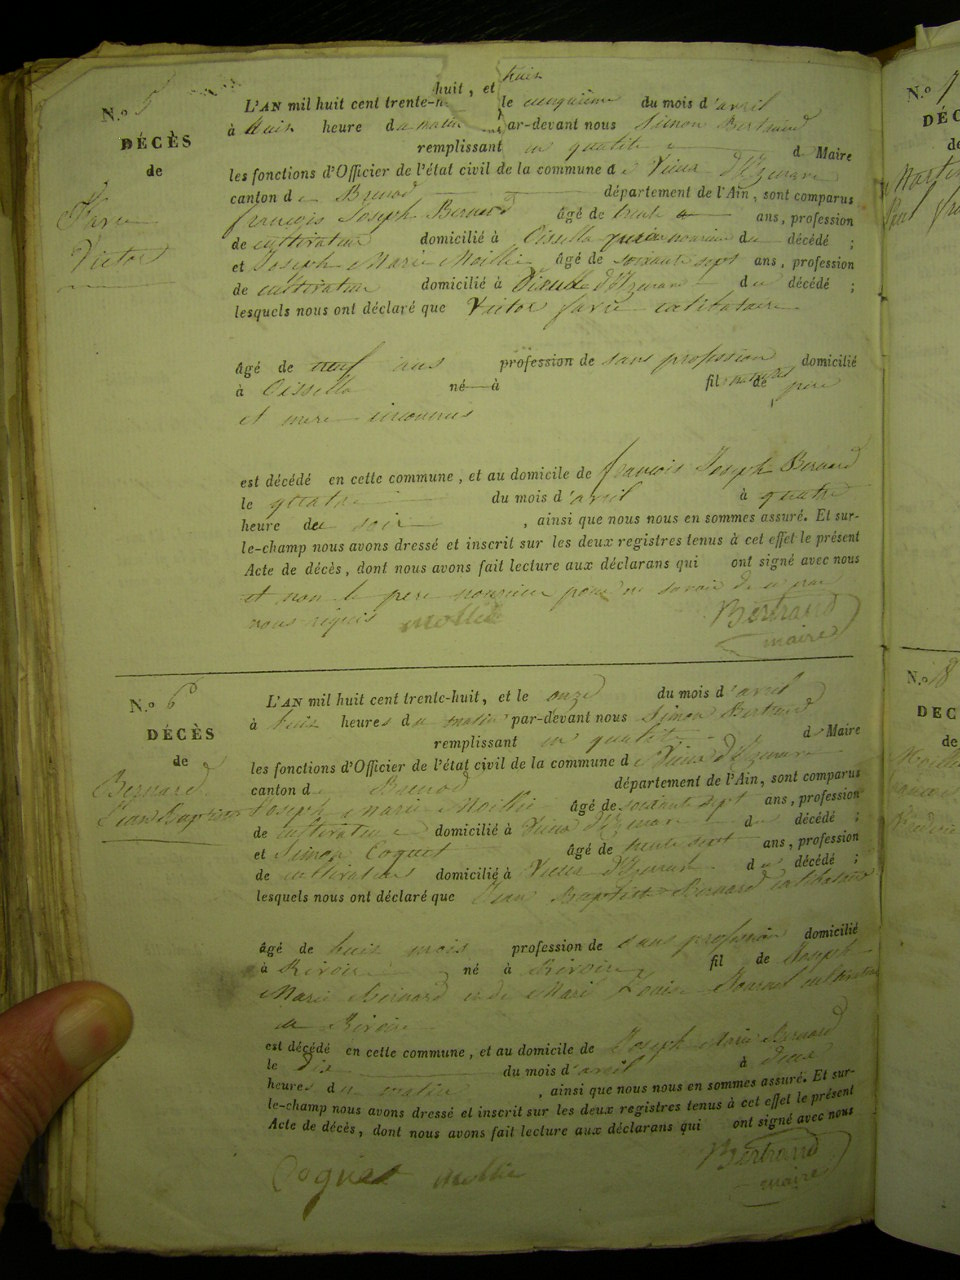 N.o 5
DÉCÈS
de
Favre
Victor
huit, et huit
L'AN mil huit cent trente-n le cinquième du mois d'avril
à huit heure du matin par-devant nous Simon Bertrand
remplissant en qualité de Maire
les fonctions d'Officier de l'état civil de la commune de Vieux d'Izenave
canton de Brenod département de l'Ain, sont comparus
françois Joseph Bernard âgé de trente ans, profession
de cultivateur domicilié à Cisella père nouricier du décédé ;
et Joseph Marie Moillie âgé de soixante sept ans, profession
de cultivateur domicilié à Vieux d'Izenave du décédé ;
lesquels nous ont déclaré que Victor favre célibataire
âgé de neuf ans profession de sans profession domicilié
à Cisella né à fil naturel de père
et mere inconnus
est décédé en cette commune, et au domicile de françois Joseph Bernard
le quatre du mois d'avril à quatre
heure de soir , ainsi que nous nous en sommes assuré. Et sur-
le-champ nous avons dressé et inscrit sur les deux registres tenus à cet effet le présent
Acte de décès, dont nous avons fait lecture aux déclarans qui ont signé avec nous
et non le pere nouricier pour ne savoir de ce par
nous requis Mollie Bertrand
maire
N.o 6
DÉCÈS
de
Bernard
Jean Baptiste
L'AN mil huit cent trente-huit, et le onze du mois d'avril
à huit heures du matin par-devant nous Simon Bertrand
remplissant en qualité de Maire
les fonctions d'Officier de l'état civil de la commune de Vieux d'Izenave
canton de Brenod département de l'Ain, sont comparus
Joseph marie Moillie âgé de soixante sept ans, profession
de cultivateur domicilié à Vieux d'Izenave du décédé ;
et Simon Coquet âgé de trente sept ans, profession
de cultivateur domicilié à Vieux d'Izenave du décédé ;
lesquels nous ont déclaré que Jean Baptiste Bernard célibataire
âgé de huit mois profession de sans profession domicilié
à Rivoire né à Rivoire fil de Joseph
Marie Bernard et de Marie Louise cultivateur
a Rivoire
est décédé en cette commune, et au domicile de Joseph Marie Bernard
le dix du mois d'avril à deux
heures du matin , ainsi que nous nous en sommes assuré. Et sur-
le-champ nous avons dressé et inscrit sur les deux registres tenus à cet effet le présent
Acte de décès, dont nous avons fait lecture aux déclarans qui ont signé avec nous
Coquet Mollie Bertrand
maire
N.o 7
DÉC
de
N.o 8
DEC
de